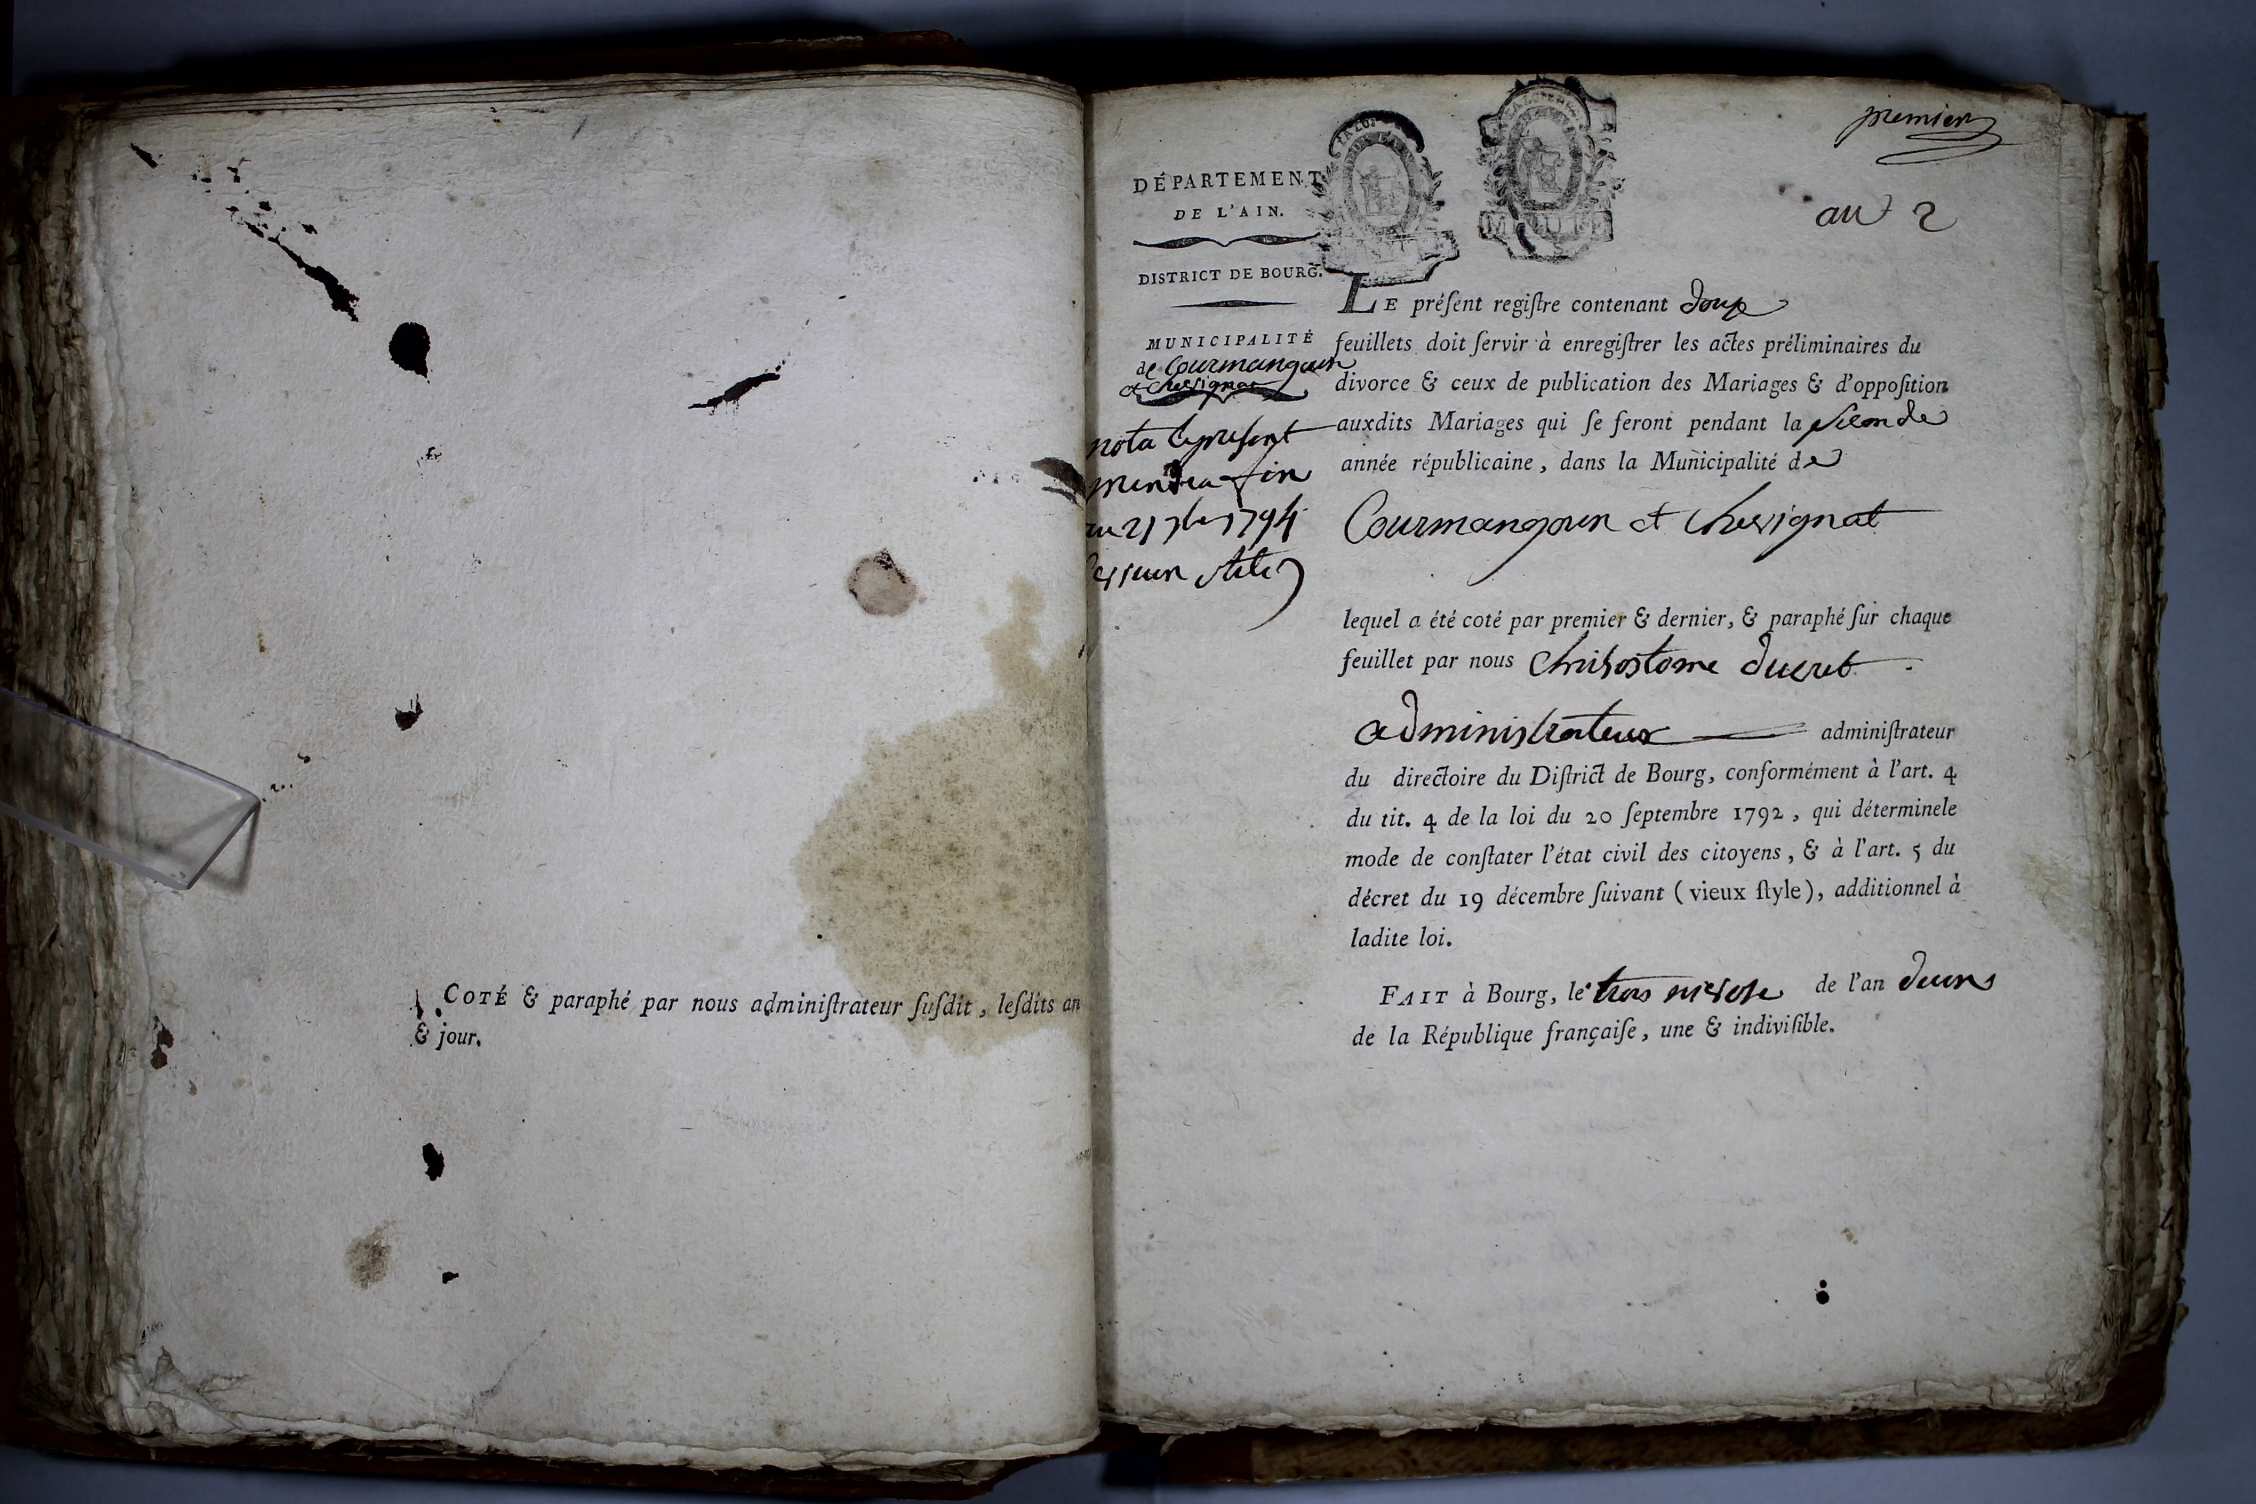 COTÉ & paraphé par nous adminiſtrateur ſuſdit, leſdits an
& jour.
premier
an 2
DÉPARTEMENT
DE L'AIN.
DISTRICT DE BOURG.
MUNICIPALITÉ
de Courmangoux
et Chevignat
nota le present
prendra fin
au 21 7bre 1794
vieux stile
LE préſent regiſtre contenant douze
feuillets doit ſervir à enregiſtrer les actes préliminaires du
divorce & ceux de publication des Mariages & d'oppoſition
auxdits Mariages qui ſe feront pendant la seconde
année républicaine, dans la Municipalité de
Courmangoux et Chevignat
lequel a été coté par premier & dernier, & paraphé ſur chaque
feuillet par nous Chrisostome ducret
administrateur adminiſtrateur
du directoire du Diſtrict de Bourg, conformément à l'art. 4
du tit. 4 de la loi du 20 ſeptembre 1792, qui déterminele
mode de conſtater l'état civil des citoyens, & à l'art. 5 du
décret du 19 décembre ſuivant (vieux ſtyle), additionnel à
ladite loi.
FAIT à Bourg, le trois nivose de l'an deux
de la République françaiſe, une & indiviſible.